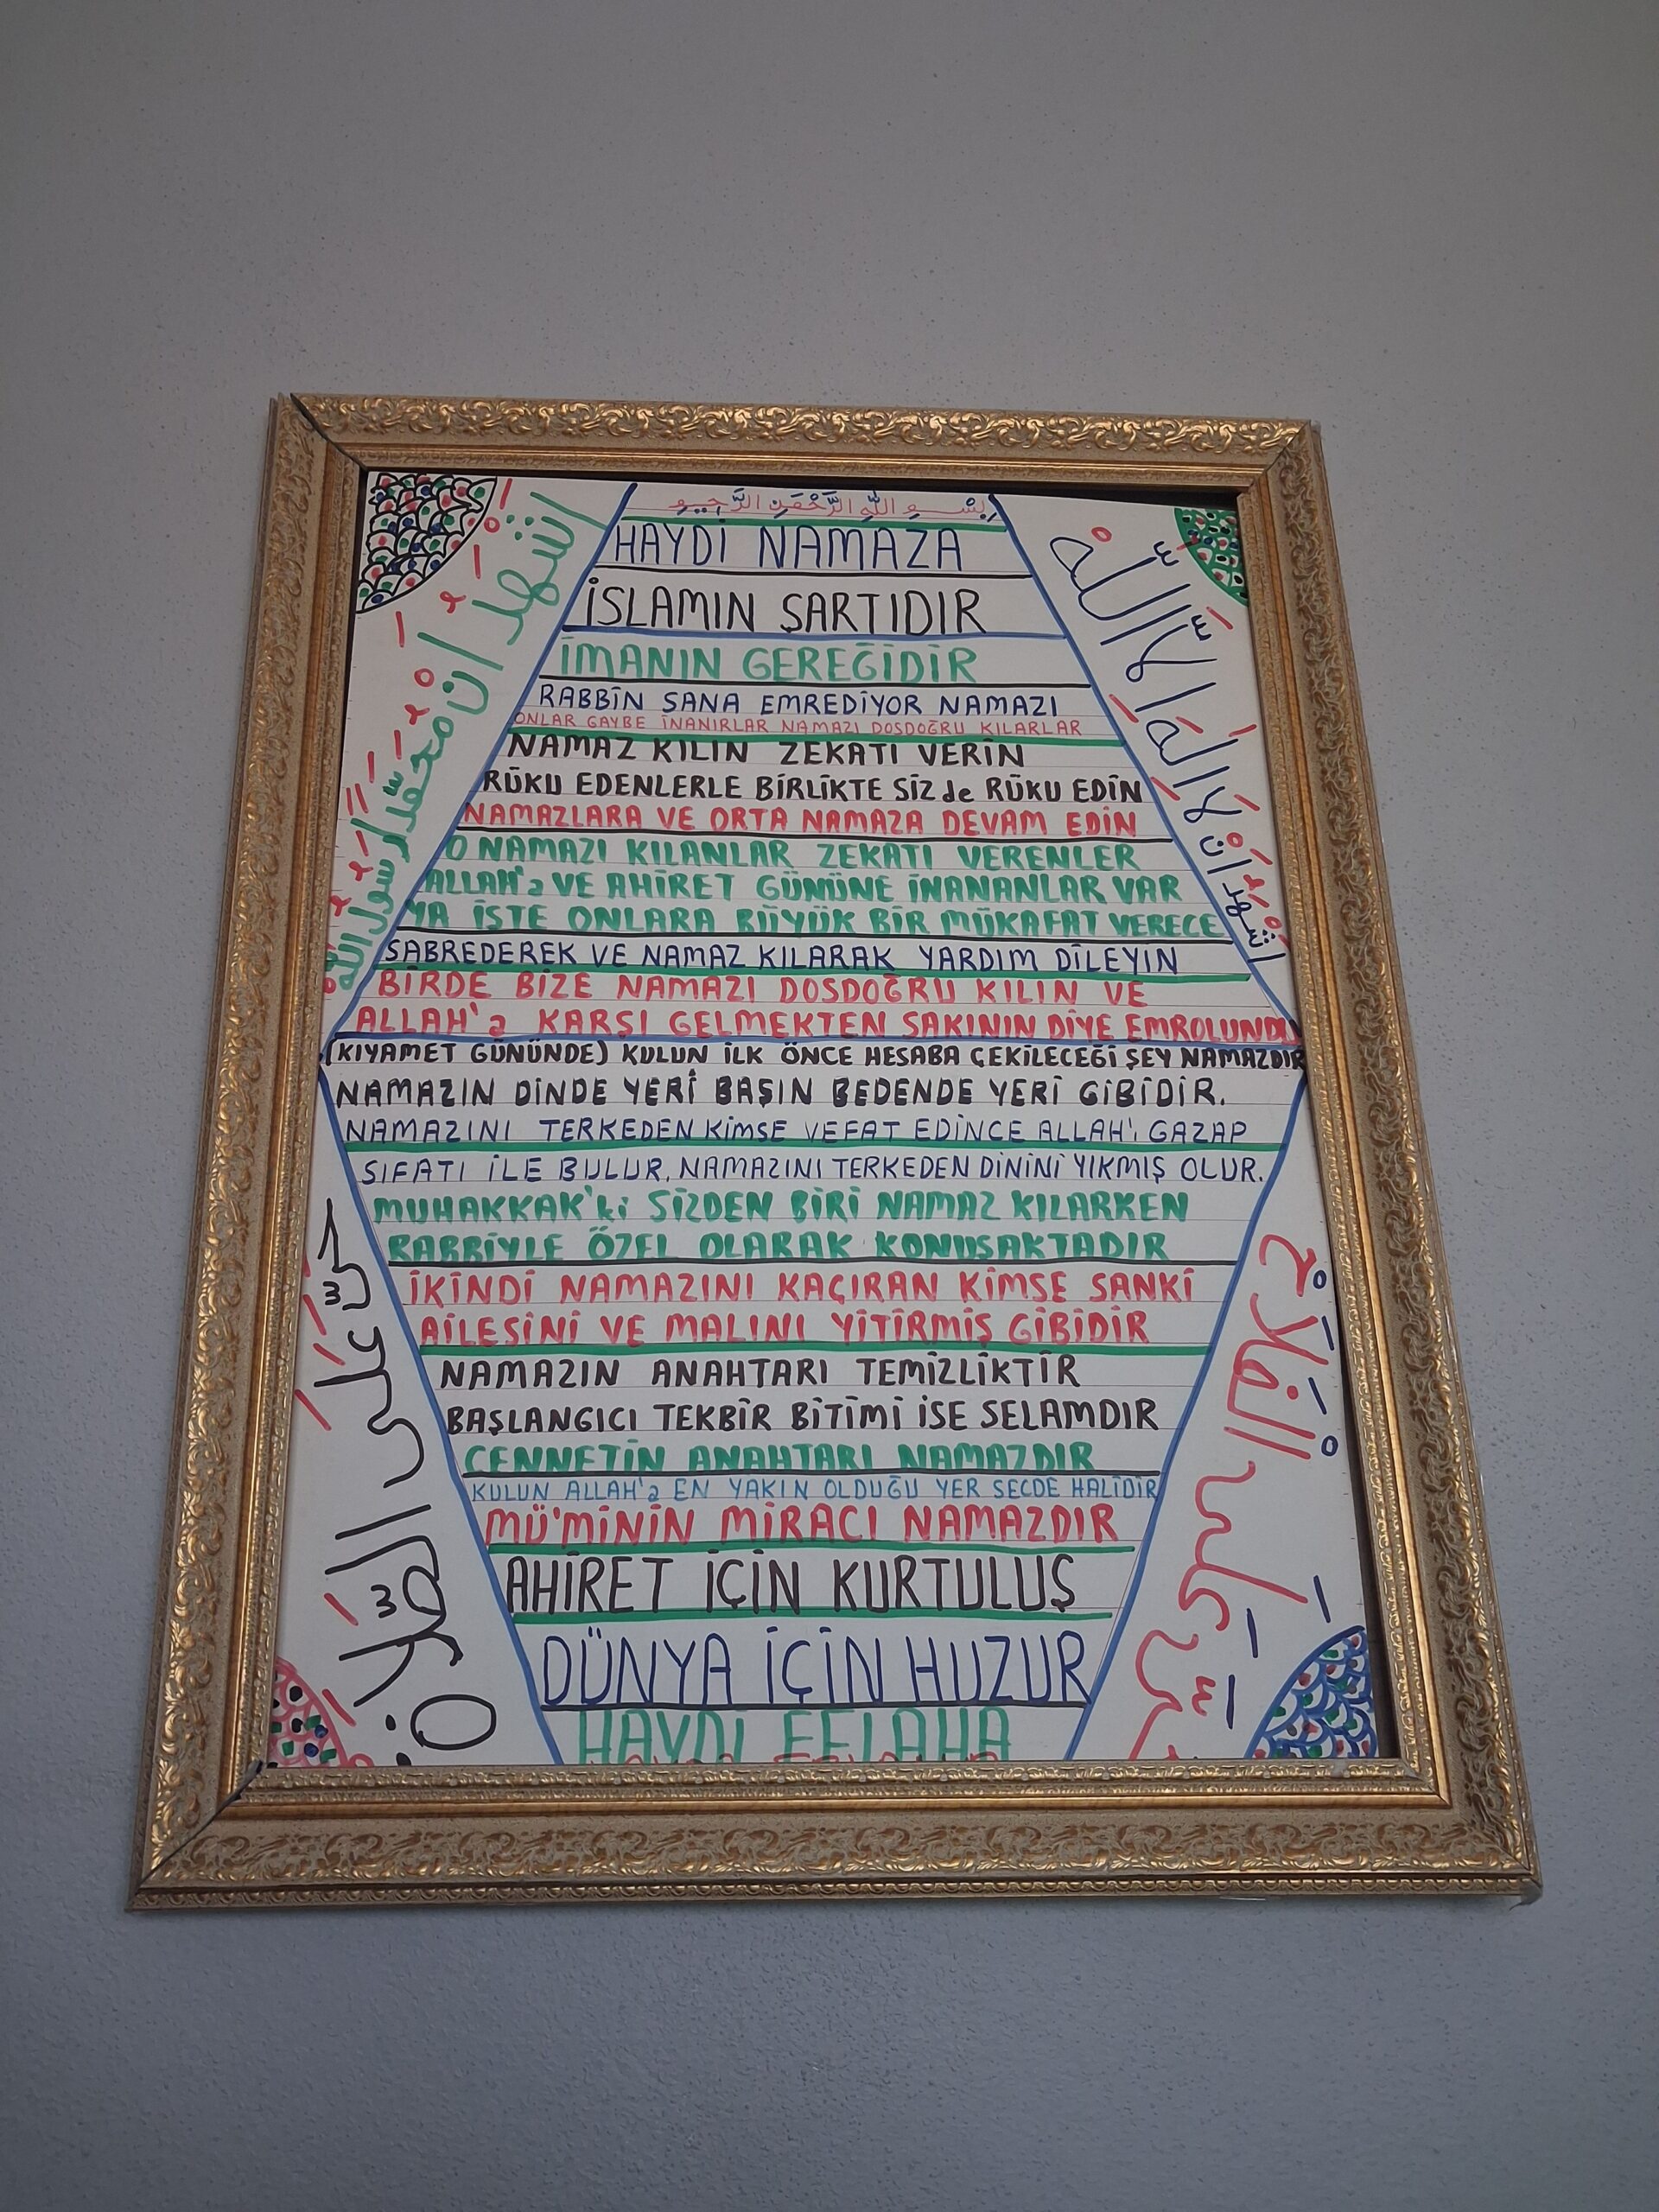 بِسْمِ اللّٰهِ الرَّحْمٰنِ الرَّحِيمِ
HAYDİ NAMAZA
İSLAMIN ŞARTIDIR
İMANIN GEREĞİDİR
RABBİN SANA EMREDİYOR NAMAZI
ONLAR GAYBE İNANIRLAR NAMAZI DOSDOĞRU KILARLAR
NAMAZ KILIN ZEKATI VERİN
RÜKU EDENLERLE BİRLİKTE SİZ de RÜKU EDİN
NAMAZLARA VE ORTA NAMAZA DEVAM EDİN
O NAMAZI KILANLAR ZEKATI VERENLER
ALLAH'a VE AHİRET GÜNÜNE İNANANLAR VAR
YA İŞTE ONLARA BÜYÜK BİR MÜKAFAT VERECE
SABREDEREK VE NAMAZ KILARAK YARDIM DİLEYIN
BİRDE BİZE NAMAZI DOSDOĞRU KILIN VE
ALLAH'a KARŞI GELMEKTEN SAKININ DİYE EMROLUNDU
(KIYAMET GÜNÜNDE) KULUN İLK ÖNCE HESABA ÇEKİLECEĞİ ŞEY NAMAZDIR
NAMAZIN DİNDE YERİ BAŞIN BEDENDE YERİ GİBİDİR.
NAMAZINI TERKEDEN KİMSE VEFAT EDİNCE ALLAH'ı GAZAP
SIFATI İLE BULUR. NAMAZINI TERKEDEN DİNİNİ YIKMIŞ OLUR.
MUHAKKAK'ki SİZDEN BİRİ NAMAZ KILARKEN
RABBİYLE ÖZEL OLARAK KONUŞAKTADIR
İKİNDİ NAMAZINI KAÇIRAN KİMSE SANKİ
AİLESİNİ VE MALINI YİTİRMİŞ GİBİDİR
NAMAZIN ANAHTARI TEMİZLİKTİR
BAŞLANGICI TEKBİR BİTİMİ İSE SELAMDIR
CENNETİN ANAHTARI NAMAZDIR
KULUN ALLAH'a EN YAKIN OLDUĞU YER SECDE HALİDİR
MÜ'MİNİN MİRACI NAMAZDIR
AHİRET İÇİN KURTULUŞ
DÜNYA İÇİN HUZUR
HAYDİ FELAHA
اشهد ان لا اله الا الله
اشهد ان محمدا رسول الله
حي على الصلاة
حي على الفلاح